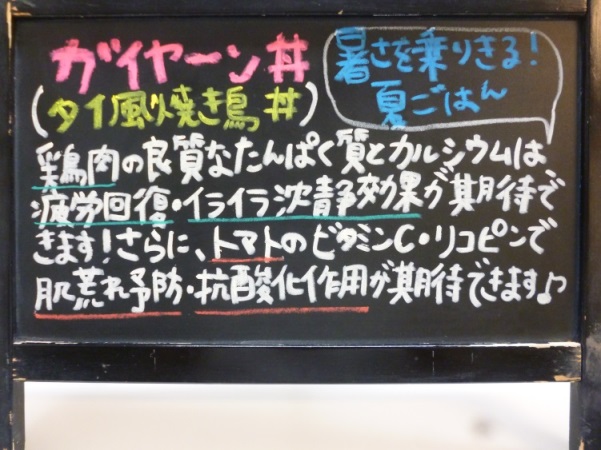 ガイヤーン丼
(タイ風焼き鳥丼)
暑さを乗りきる!
夏ごはん
鶏肉の良質なたんぱく質とカルシウムは
疲労回復・イライラ沈静効果が期待で
きます!さらに、トマトのビタミンC・リコピンで
肌荒れ予防・抗酸化作用が期待できます♪